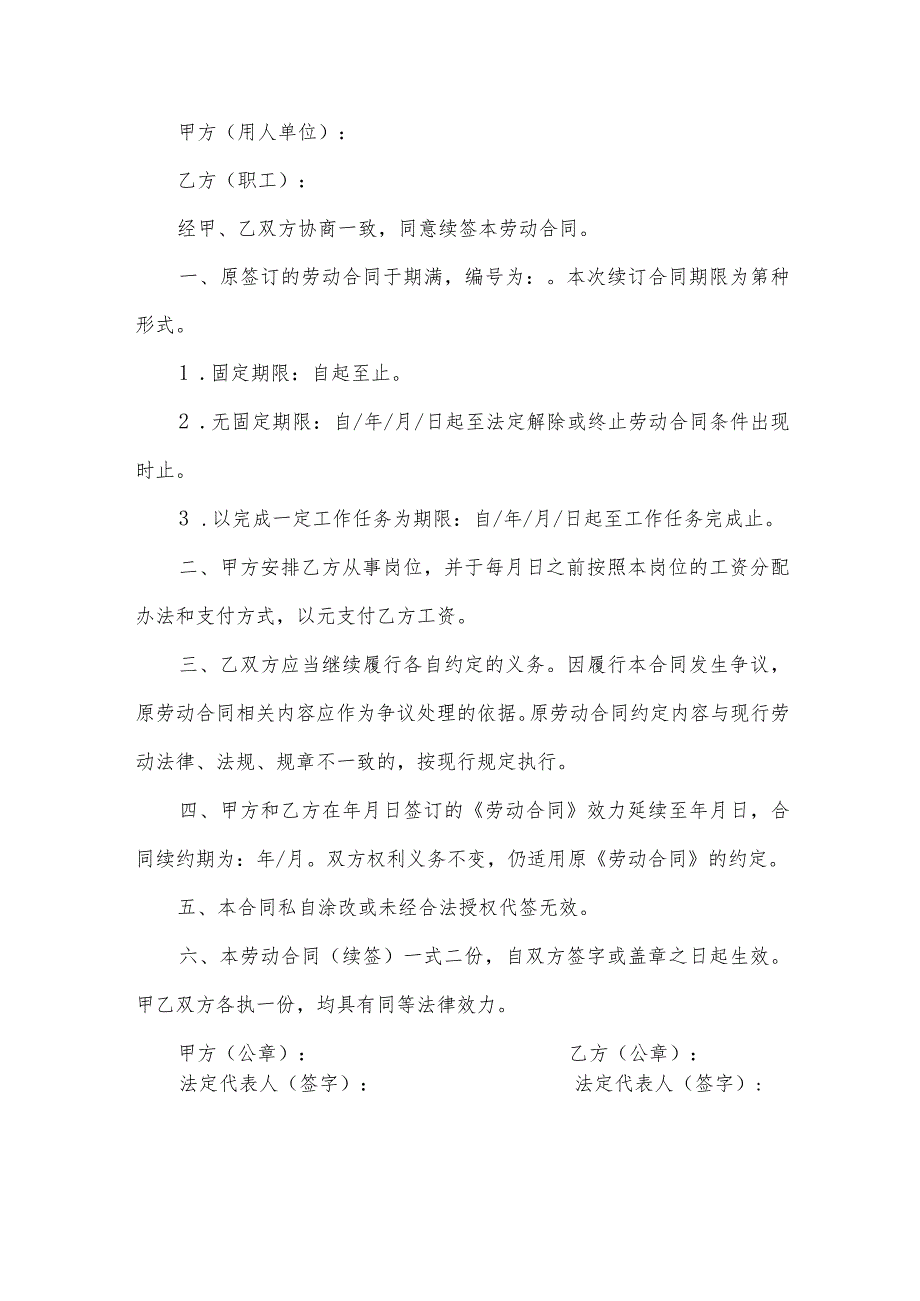 甲方（用人单位）：
乙方（职工）：
经甲、乙双方协商一致，同意续签本劳动合同。
一、原签订的劳动合同于期满，编号为：。本次续订合同期限为第种
形式。
1 .固定期限：自起至止。
2 .无固定期限：自/年/月/日起至法定解除或终止劳动合同条件出现
时止。
3 .以完成一定工作任务为期限：自/年/月/日起至工作任务完成止。
二、甲方安排乙方从事岗位，并于每月日之前按照本岗位的工资分配
办法和支付方式，以元支付乙方工资。
三、乙双方应当继续履行各自约定的义务。因履行本合同发生争议，
原劳动合同相关内容应作为争议处理的依据。原劳动合同约定内容与现行劳
动法律、法规、规章不一致的，按现行规定执行。
四、甲方和乙方在年月日签订的《劳动合同》效力延续至年月日，合
同续约期为：年/月。双方权利义务不变，仍适用原《劳动合同》的约定。
五、本合同私自涂改或未经合法授权代签无效。
六、本劳动合同（续签）一式二份，自双方签字或盖章之日起生效。
甲乙双方各执一份，均具有同等法律效力。
甲方（公章）： 乙方（公章）：
法定代表人（签字）： 法定代表人（签字）: